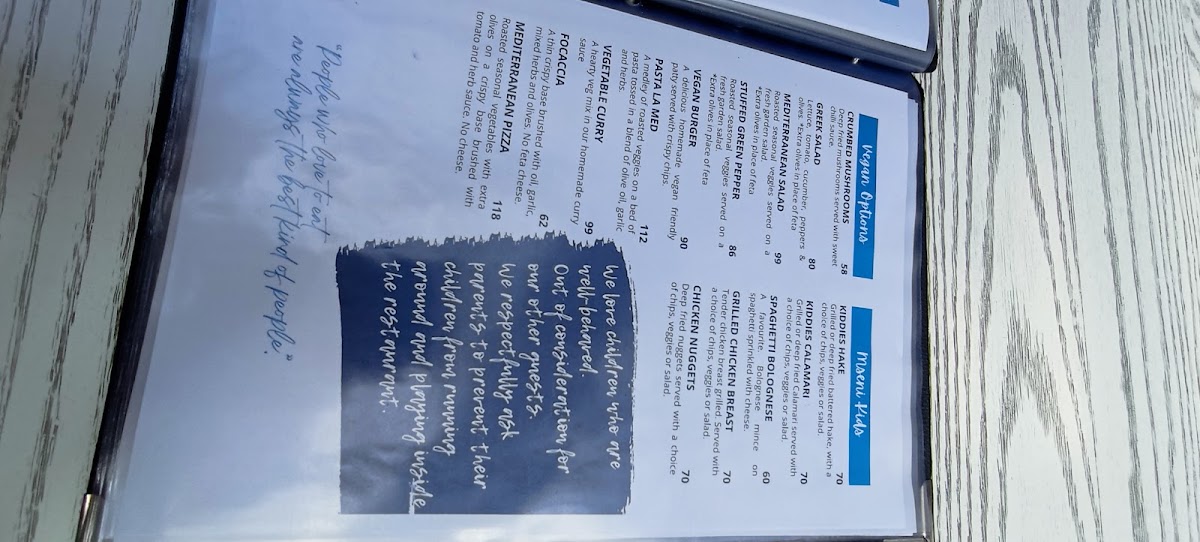 Vegan Options
CRUMBED MUSHROOMS 58
Deep fried mushrooms served with sweet
chilli sauce.
GREEK SALAD 80
Lettuce, tomato, cucumber, peppers &
olives. *Extra olives in place of feta
MEDITERRANEAN SALAD 99
Roasted seasonal veggies served on a
fresh garden salad.
*Extra olives in place of feta
STUFFED GREEN PEPPER 86
Roasted seasonal veggies served on a
fresh garden salad.
*Extra olives in place of feta
VEGAN BURGER 90
A delicious homemade vegan friendly
patty served with crispy chips.
PASTA LA MED 112
A medley of roasted veggies on a bed of
pasta tossed in a blend of olive oil, garlic
and herbs.
VEGETABLE CURRY 99
A hearty veg mix in our homemade curry
sauce
FOCACCIA 62
A thin crispy base brushed with oil, garlic,
mixed herbs and olives. No feta cheese.
MEDITERRANEAN PIZZA 118
Roasted seasonal vegetables with extra
olives on a crispy base brushed with
tomato and herb sauce. No cheese.
Mseni Kids
KIDDIES HAKE 70
Grilled or deep fried battered hake, with a
choice of chips, veggies or salad.
KIDDIES CALAMARI 70
Grilled or deep fried Calamari served with
a choice of chips, veggies or salad.
SPAGHETTI BOLOGNESE 60
A favourite. Bolognese mince on
spaghetti sprinkled with cheese.
GRILLED CHICKEN BREAST 70
Tender chicken breast grilled. Served with
a choice of chips, veggies or salad.
CHICKEN NUGGETS 70
Deep fried nuggets served with a choice
of chips, veggies or salad.
We love children who are
well-behaved.
Out of consideration for
our other guests.
We respectfully ask
parents to prevent their
children from running
around and playing inside
the restaurant.
"People who love to eat
are always the best kind of people".